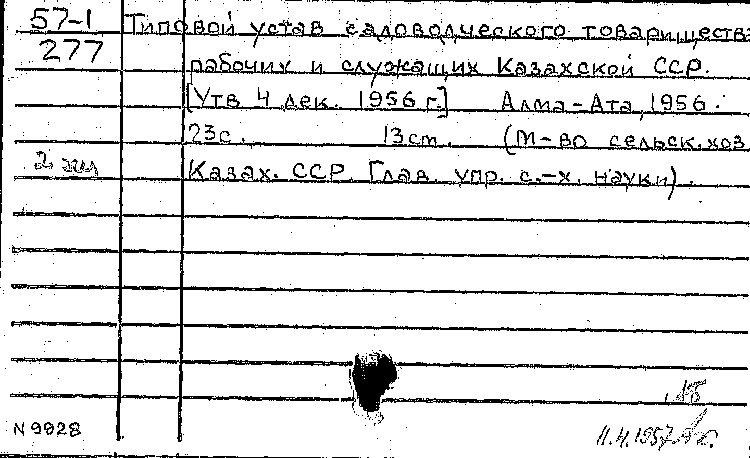 57-1 Типовой устав садоводческого товариществ
277 рабочих и служащих Казахской ССР.
[Утв 4 дек. 1956 г.] Алма-Ата, 1956.
23с. 13см. (М-во сельск. хоз
2 экз Казах. ССР. Глав. упр. с.-х. науки).
N 9928